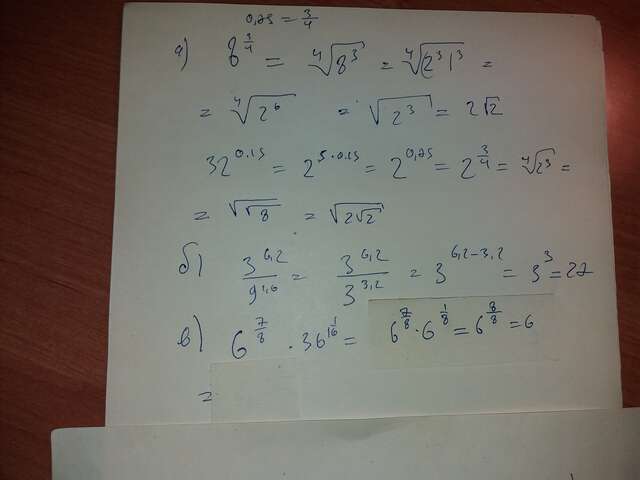 0,75 = 3/4
а) 8^(3/4) = ⁴√(8³) = ⁴√((2³)³) =
= ⁴√(2⁶) = √(2³) = 2√2
32^(0,15) = 2^(5·0,15) = 2^(0,75) = 2^(3/4) = ⁴√(2³) =
= √(√8) = √(2√2)
б) 3^(6,2) / 9^(1,6) = 3^(6,2) / 3^(3,2) = 3^(6,2-3,2) = 3³ = 27
в) 6^(7/8) · 36^(1/16) = 6^(7/8) · 6^(1/8) = 6^(8/8) = 6
=